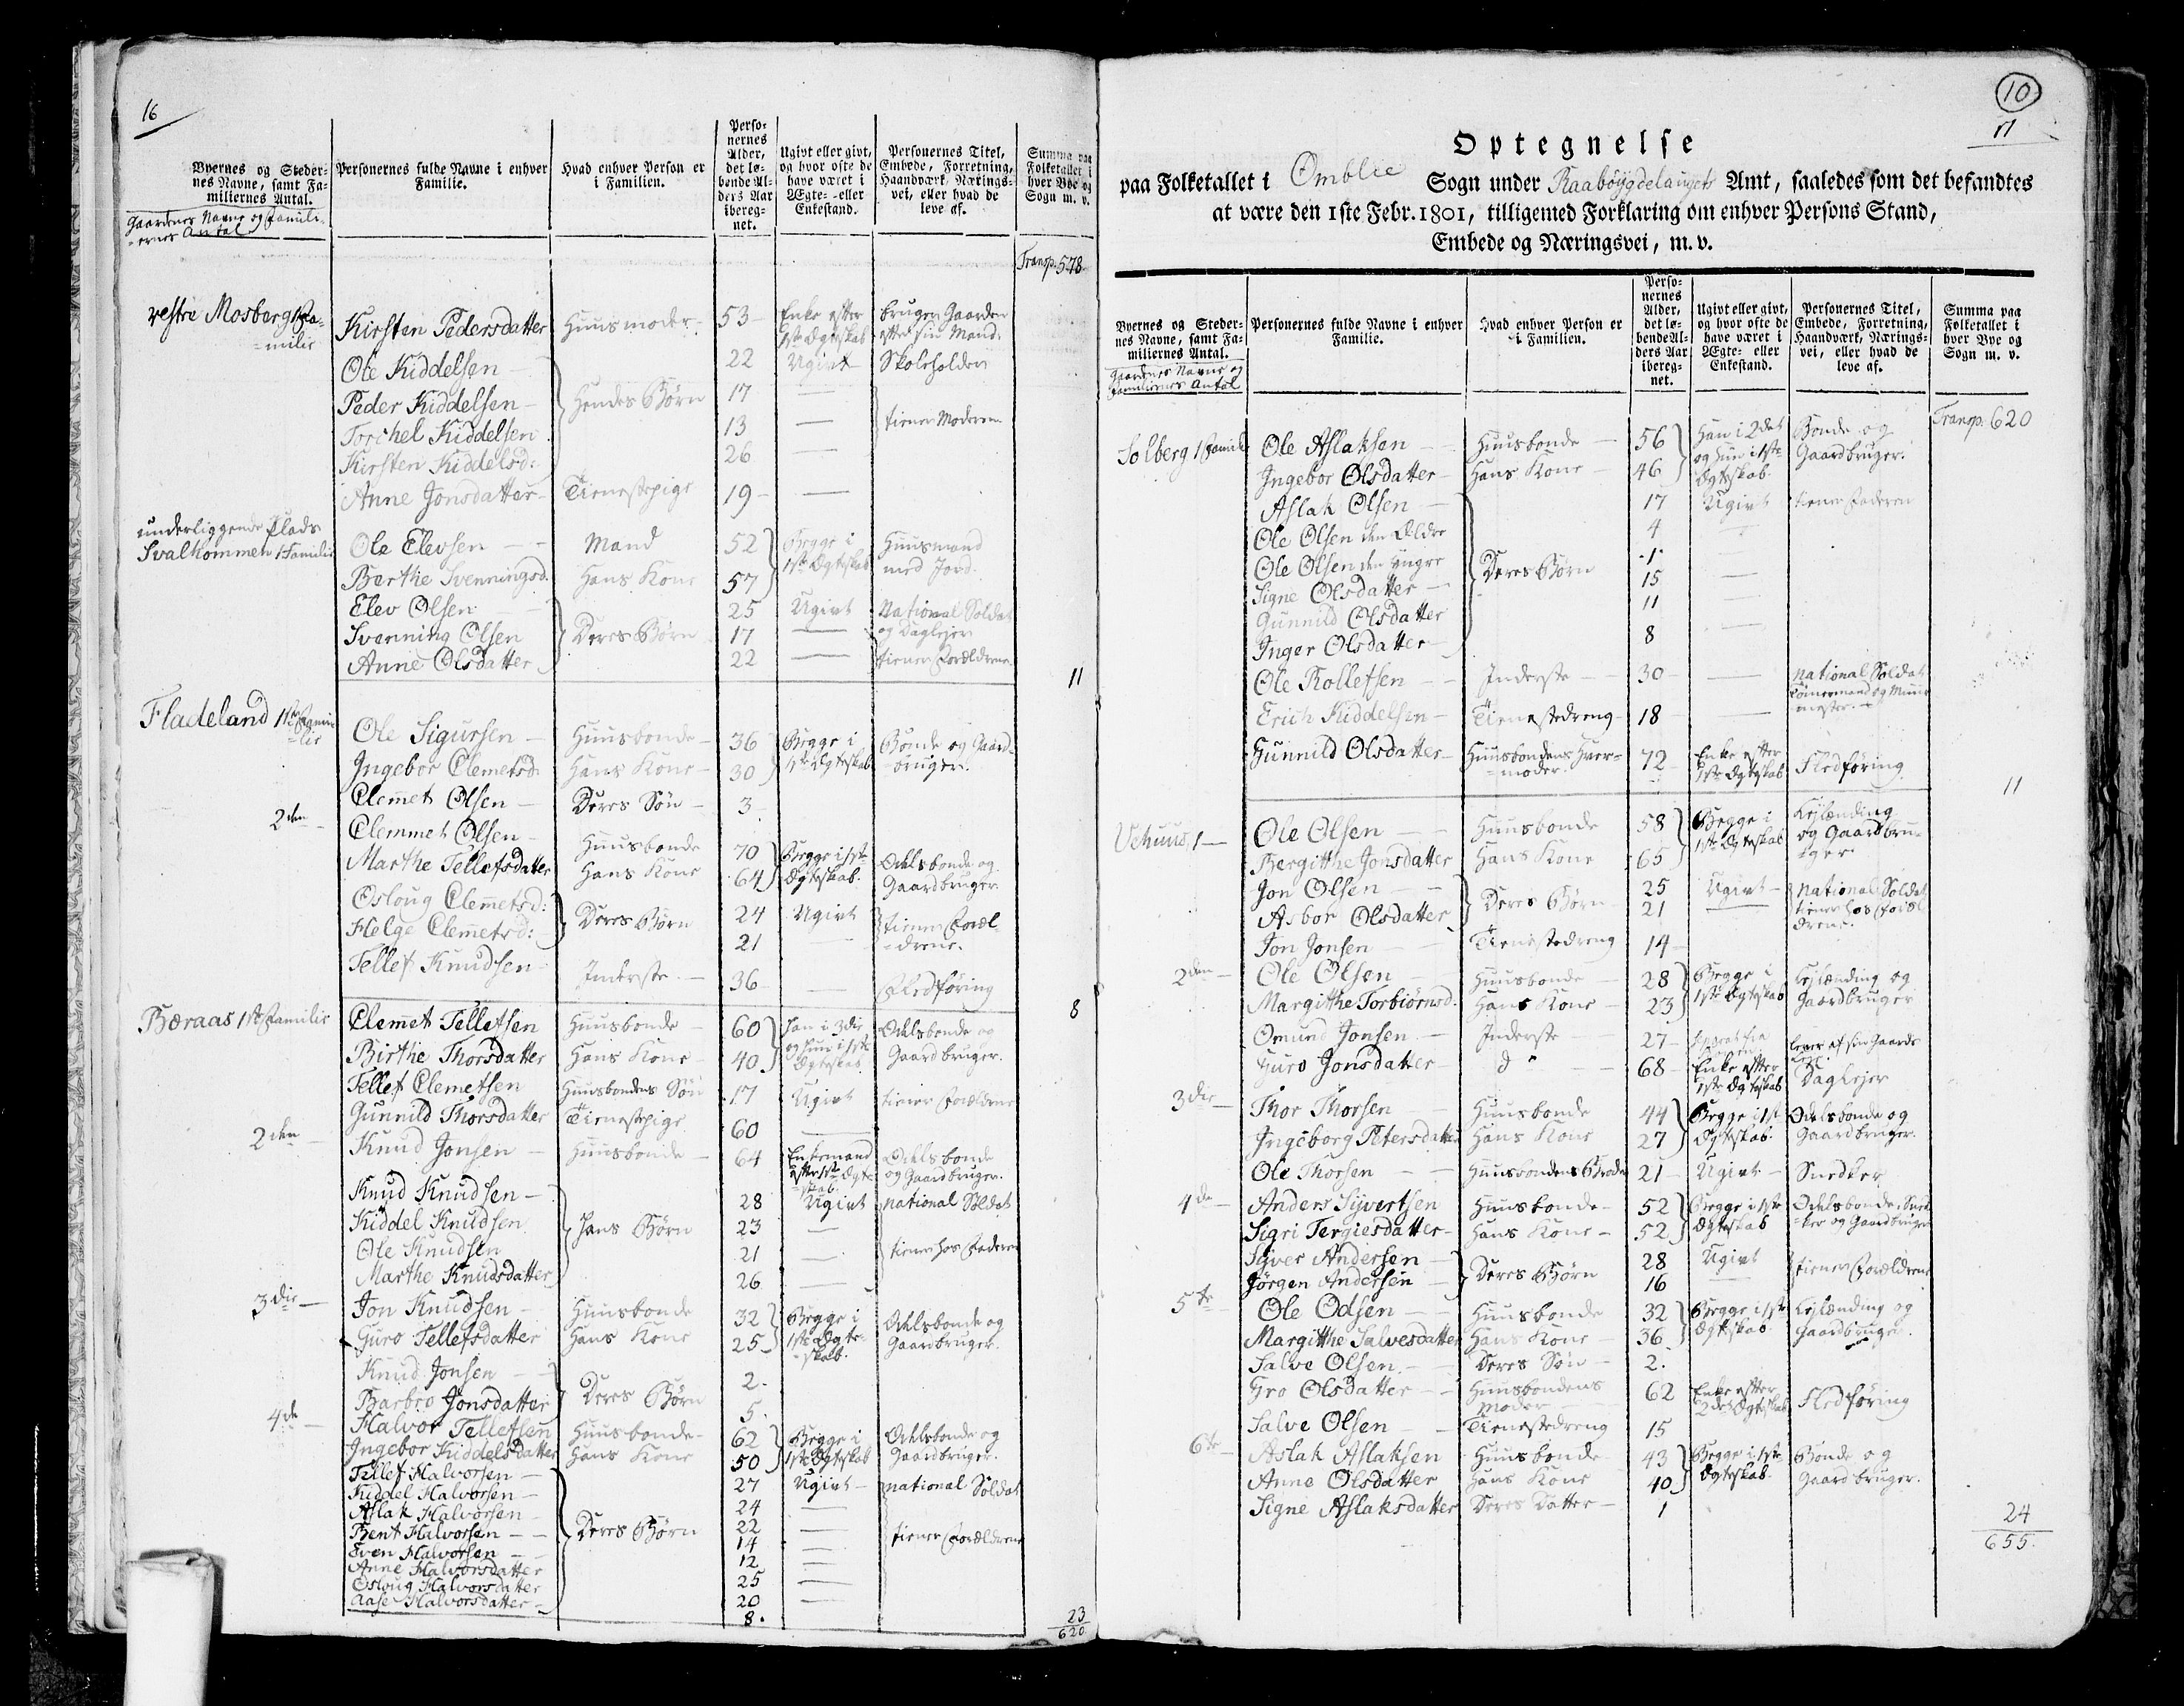 16
Byernes og Steder-
nes Navne, samt Fa-
miliernes Antal.
Gaardenes Navne og Famili-
-ernes Antal
Personernes fulde Navne i enhver
Familie.
Hvad enhver Person er
i Familien.
Perso-
nernes
Alder,
det lø-
bende Al-
ders Aar
ibereg-
net.
Ugivt eller givt,
og hvor ofte de
have været i
Ægte- eller
Enkestand.
Personernes Titel,
Embede, Forretning,
Haandværk, Nærings-
vei, eller hvad de
leve af.
Summa paa
Folketallet i
hver Bye og
Sogn m. v.
Transp. 578
vestre Mosberg 1 Fa-
-milie
Kirsten Pedersdatter Huusmoder 53 Enke efter 1ste Ægteskab bruger Gaarden efter sin Mand.
Ole Kiddelsen 22 Ugivt Skoleholder
Peder Kiddelsen Hendes Børn 17 —
Torchel Kiddelsen 13 — tiener Moderen
Kirsten Kiddelsd: 26 —
Anne Jonsdatter Tienestepige 19 —
underliggende Plads
Svalkommen 1 Familie
Ole Elevsen Mand 52 Begge i 1ste Ægteskab Huusmand med Jord
Berthe Svenningsd. Hans Kone 57
Elev Olsen 25 Ugivt National Soldat og Daglejer
Svenning Olsen Deres Børn 17 —
Anne Olsdatter 22 — tiener Forældrene
11
Fladeland 1ste Fami-
-lie
Ole Sigursen Huusbonde 36 Begge i 1ste Ægteskab Bonde og Gaard-
-bruger.
Ingebor Clemetsd: Hans Kone 30
Clemet Olsen Deres Søn 3
2den
Clemmet Olsen Huusbonde 70 Begge i 1ste Ægteskab. Odelsbonde og Gaardbruger
Marthe Tellefsdatter Hans Kone 64
Osloug Clemetsd: Deres Børn 24 Ugivt tiener Foræl-
-drene.
Helge Clemetsd: 21
Tellef Knudsen Inderste 36 — Fledføring
8
Beraas 1ste Familie
Clemet Tellefsen Huusbonde 60 Han i 3die og hun i 1ste Ægteskab Odelsbonde og Gaardbruger.
Birthe Thorsdatter Hans Kone 40
Tellef Clemetsen Huusbondens Søn 17 Ugivt tiener Forældrene
Gunnild Thorsdatter Tienestepige 60 —
2den
Knud Jonsen Huusbonde 64 Enkemand efter 1ste Ægte-
-skab Odelsbonde og Gaardbruger.
Knud Knudsen 28 Ugivt national Soldat
Kiddel Knudsen Hans Børn 23 —
Ole Knudsen 21 — tiener hos Faderen
Marthe Knudsdatter 26 —
3die
Jon Knudsen Huusbonde 32 Begge i 1ste Ægte-
-skab. Odelsbonde og Gaardbruger.
Guro Tellefsdatter Hans Kone 25
Knud Jonsen Deres Børn 2.
Barbro Jonsdatter 5.
4de
Halvor Tellefsen Huusbonde 62 Begge i 1ste Ægteskab Odelsbonde og Gaardbruger.
Ingebor Kiddelsdatter Hans Kone 50
Tellef Halvorsen 27 Ugivt national Soldat
Kiddel Halvorsen 24 —
Aslak Halvorsen 22 —
Bent Halvorsen Deres Børn 14 — tiener Forældrene
Even Halvorsen 12 —
Anne Halvorsdatter 25 —
Osloug Halvorsdatter 20 —
Aase Halvorsdatter 8.
23
620
10
17
Optegnelse
paa Folketallet i Omblie Sogn under Raabøygdelaugets Amt, saaledes som det befandtes
at være den 1ste Febr. 1801, tilligemed Forklaring om enhver Persons Stand,
Embede og Næringsvei, m. v.
Byernes og Steder-
nes Navne, samt Fa-
miliernes Antal.
Gaardenes Navne og
Familiernes Antal
Personernes fulde Navne i enhver
Familie.
Hvad enhver Person er
i Familien.
Perso-
nernes
Alder,
det lø-
bende Al-
ders Aar
ibereg-
net.
Ugivt eller givt,
og hvor ofte de
have været i
Ægte- eller
Enkestand.
Personernes Titel,
Embede, Forretning,
Haandværk, Nærings-
vei, eller hvad de
leve af.
Summa paa
Folketallet i
hver Bye og
Sogn m. v.
Transp. 620
Solberg 1 Familie
Ole Aslaksen Huusbonde 56 Han i 2det og hun i 1ste Ægteskab Bonde og Gaardbruger.
Ingebor Olsdatter Hans Kone 46
Aslak Olsen 17 Ugivt tiener Faderen
Ole Olsen den Ældre 4
Ole Olsen den Yngre Deres Børn 1
Signe Olsdatter 15 —
Gunnild Olsdatter 11 —
Inger Olsdatter 8 —
Ole Rollefsen Inderste 30 — National Soldat
Erich Kiddelsen Tienestedreng 18 —
Gunnild Olsdatter Huusbondens Svær-
-moder. 72 Enke efter 1ste Ægteskab Fledføring
11
Vehuus 1
Ole Olsen Huusbonde 58 Begge i 1ste Ægteskab Lejlænding og Gaardbru-
-ger
Bergitthe Jonsdatter Hans Kone 65
Jon Olsen Deres Børn 25 Ugivt National Soldat
Asbor Olsdatter 21 — tiener hos Foræl
drene.
Jon Jonsen Tienestedreng 14
2den
Ole Olsen Huusbonde 28 Begge i 1ste Ægteskab Lejlænding og Gaardbruger
Margitthe Torbiørnsd. Hans Kone 23
Omund Jonsen Inderste 27
Guro Jonsdatter d° 68 Enke efter 1ste Ægteskab Daglejer
3die
Thor Thorsen Huusbonde 44 Begge i 1ste Ægteskab. Odelsbonde og Gaardbruger.
Ingeborg Petersdatter Hans Kone 27
Ole Thorsen Huusbondens Broder 21 Ugivt Snedker
4de
Anders Syvertsen Huusbonde 52 Begge i 1ste Ægteskab Odelsbonde, Sned-
-ker og Gaardbruger
Sigri Tergiesdatter Hans Kone 52
Syver Andersen Deres Børn 28 Ugivt tiener Forældrene
Jørgen Andersen 16 —
5te
Ole Odsen Huusbonde 32 Begge i 1ste Ægteskab Lejlænding og Gaardbruger.
Margitthe Salvesdatter Hans Kone 36
Salve Olsen Deres Søn 2.
Gro Olsdatter Huusbondens Moder 62 Enke efter 2det Ægteskab Fledføring
Salve Olsen Tienestedreng 15
6te
Aslak Aslaksen Huusbonde 43 Begge i 1ste Ægteskab. Bonde og Gaardbruger.
Anne Olsdatter Hans Kone 40
Signe Aslaksdatter Deres Datter 1
24
655.